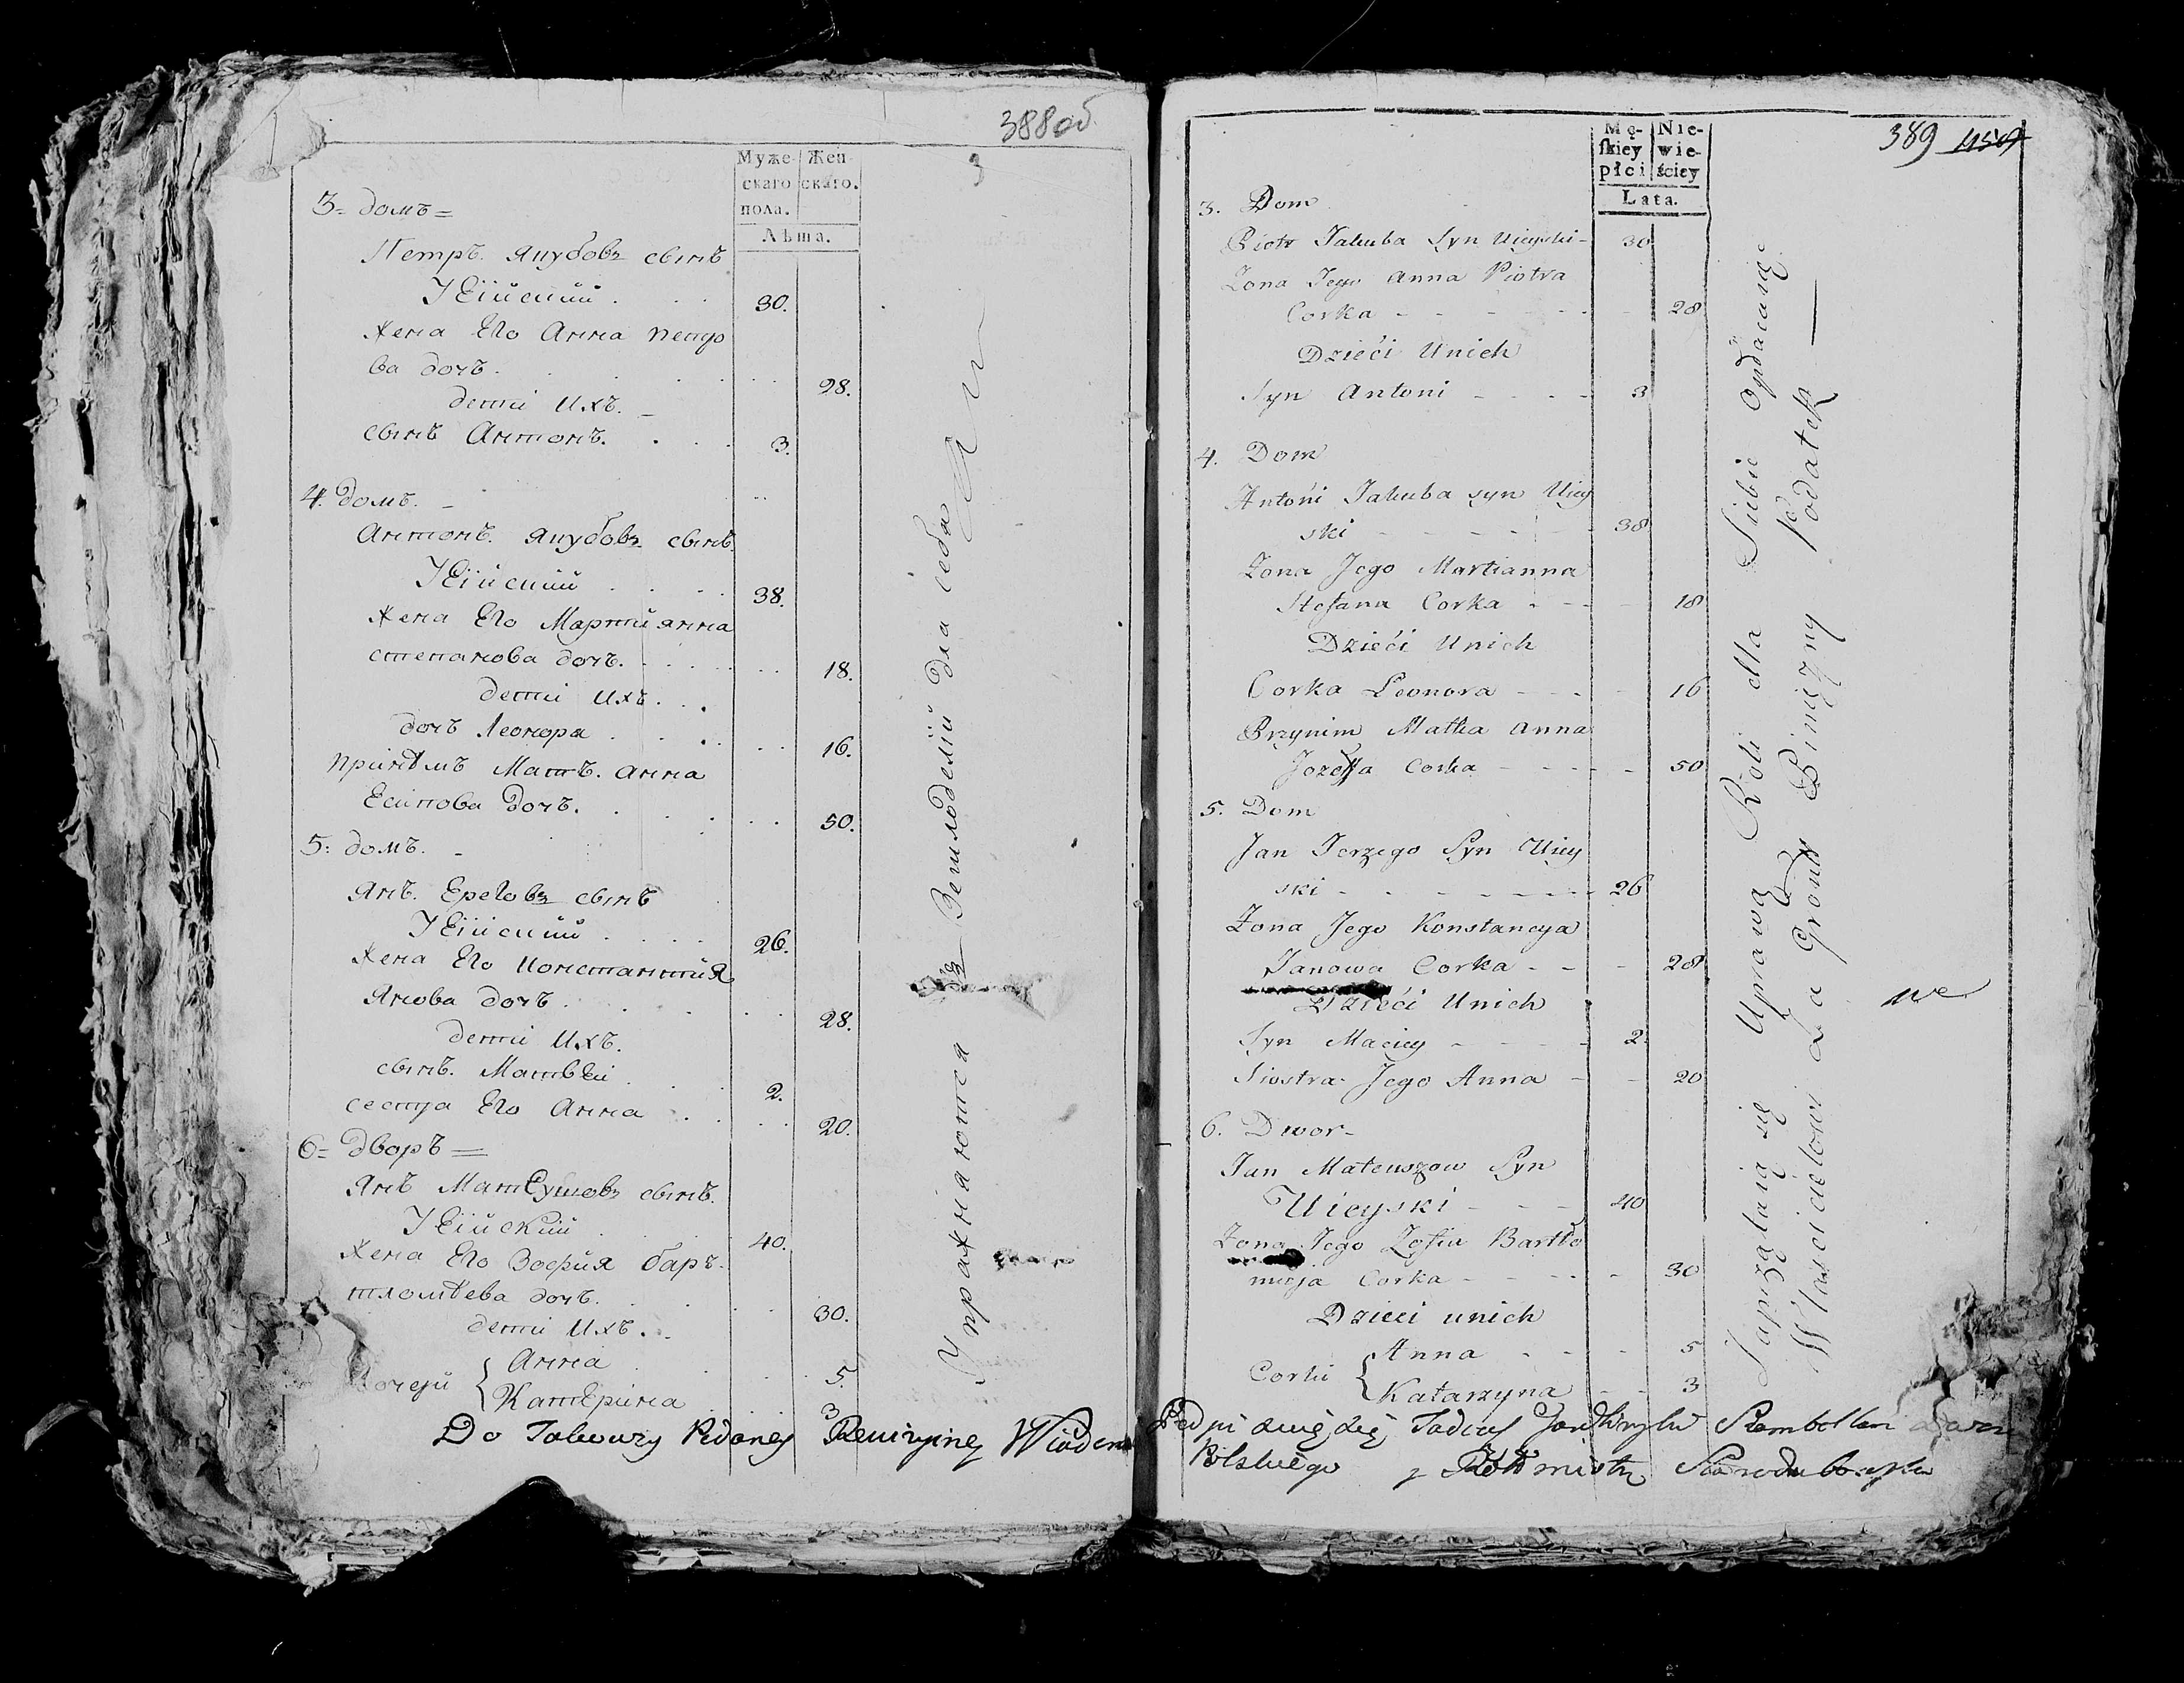 388об
3
Муже- Жен-
скаго скаго.
пола.
Лѣта.
3= домъ=
Петръ Якубовъ сынъ
30.
жена Его Анна петро
ва дочь. 28.
дети Ихъ.
сынъ Антонъ. 3.
4. домъ.
Антонъ. Якубовъ сынъ.
38.
жена Его Мартианна
степанова дочь. 18.
дети Ихъ.
дочь Леонора 16.
принемъ Мать. анна
Есипова дочь. 50.
5: домъ.
Янъ. Ереговъ сынъ
26.
жена Его Константия
Янова дочь 28.
дети Ихъ.
сынъ. Матвеи 2.
сестра Его Анна 20.
6= дворъ=
Янъ Матеушовъ сынъ.
40.
жена Его Зофия бар-
тломеева дочь. 30.
дети Ихъ.
дочери Анна 5.
Катерина 3
Упражняются
Земледелии для себя
389
Mę- Nie-
skiey wie-
płci ściey
Lata.
3. Dom
Piotr Jakuba Syn Uieyski- 30
Zona Jego Anna Piotra
Corka - - - 28
Dzieći Unich
Syn Antoni - - - 3
4. Dom
Antoni Jakuba syn Uiey
ski - - - 38
Zona Jego Martianna
Stefana Corka - - - 18
Dzieći Unich
Corka Leonora - - - 16
Przynim Matka Anna
Jozeffa Corka - - - 50
5. Dom
Jan Jerzego Syn Uiey
ski - - - 26
Zona Jego Konstancya
Janowa Corka - - - 28
Dzieći Unich
Syn Maciey - - - 2
Siostra Jego Anna - - 20
6. Dwor-
Jan Mateuszow Syn
Uieyski - - - 40
Zona Jego Zofia Bartło
mieja Corka - - - 30
Dzieci unich
Corki Anna - - - 5
Katarzyna - - 3
Uprawą Roli dla Siebie Opłacaiąc
Włascicielowi Za Gront Podatek
Do Takowey Podaney
Polskiego